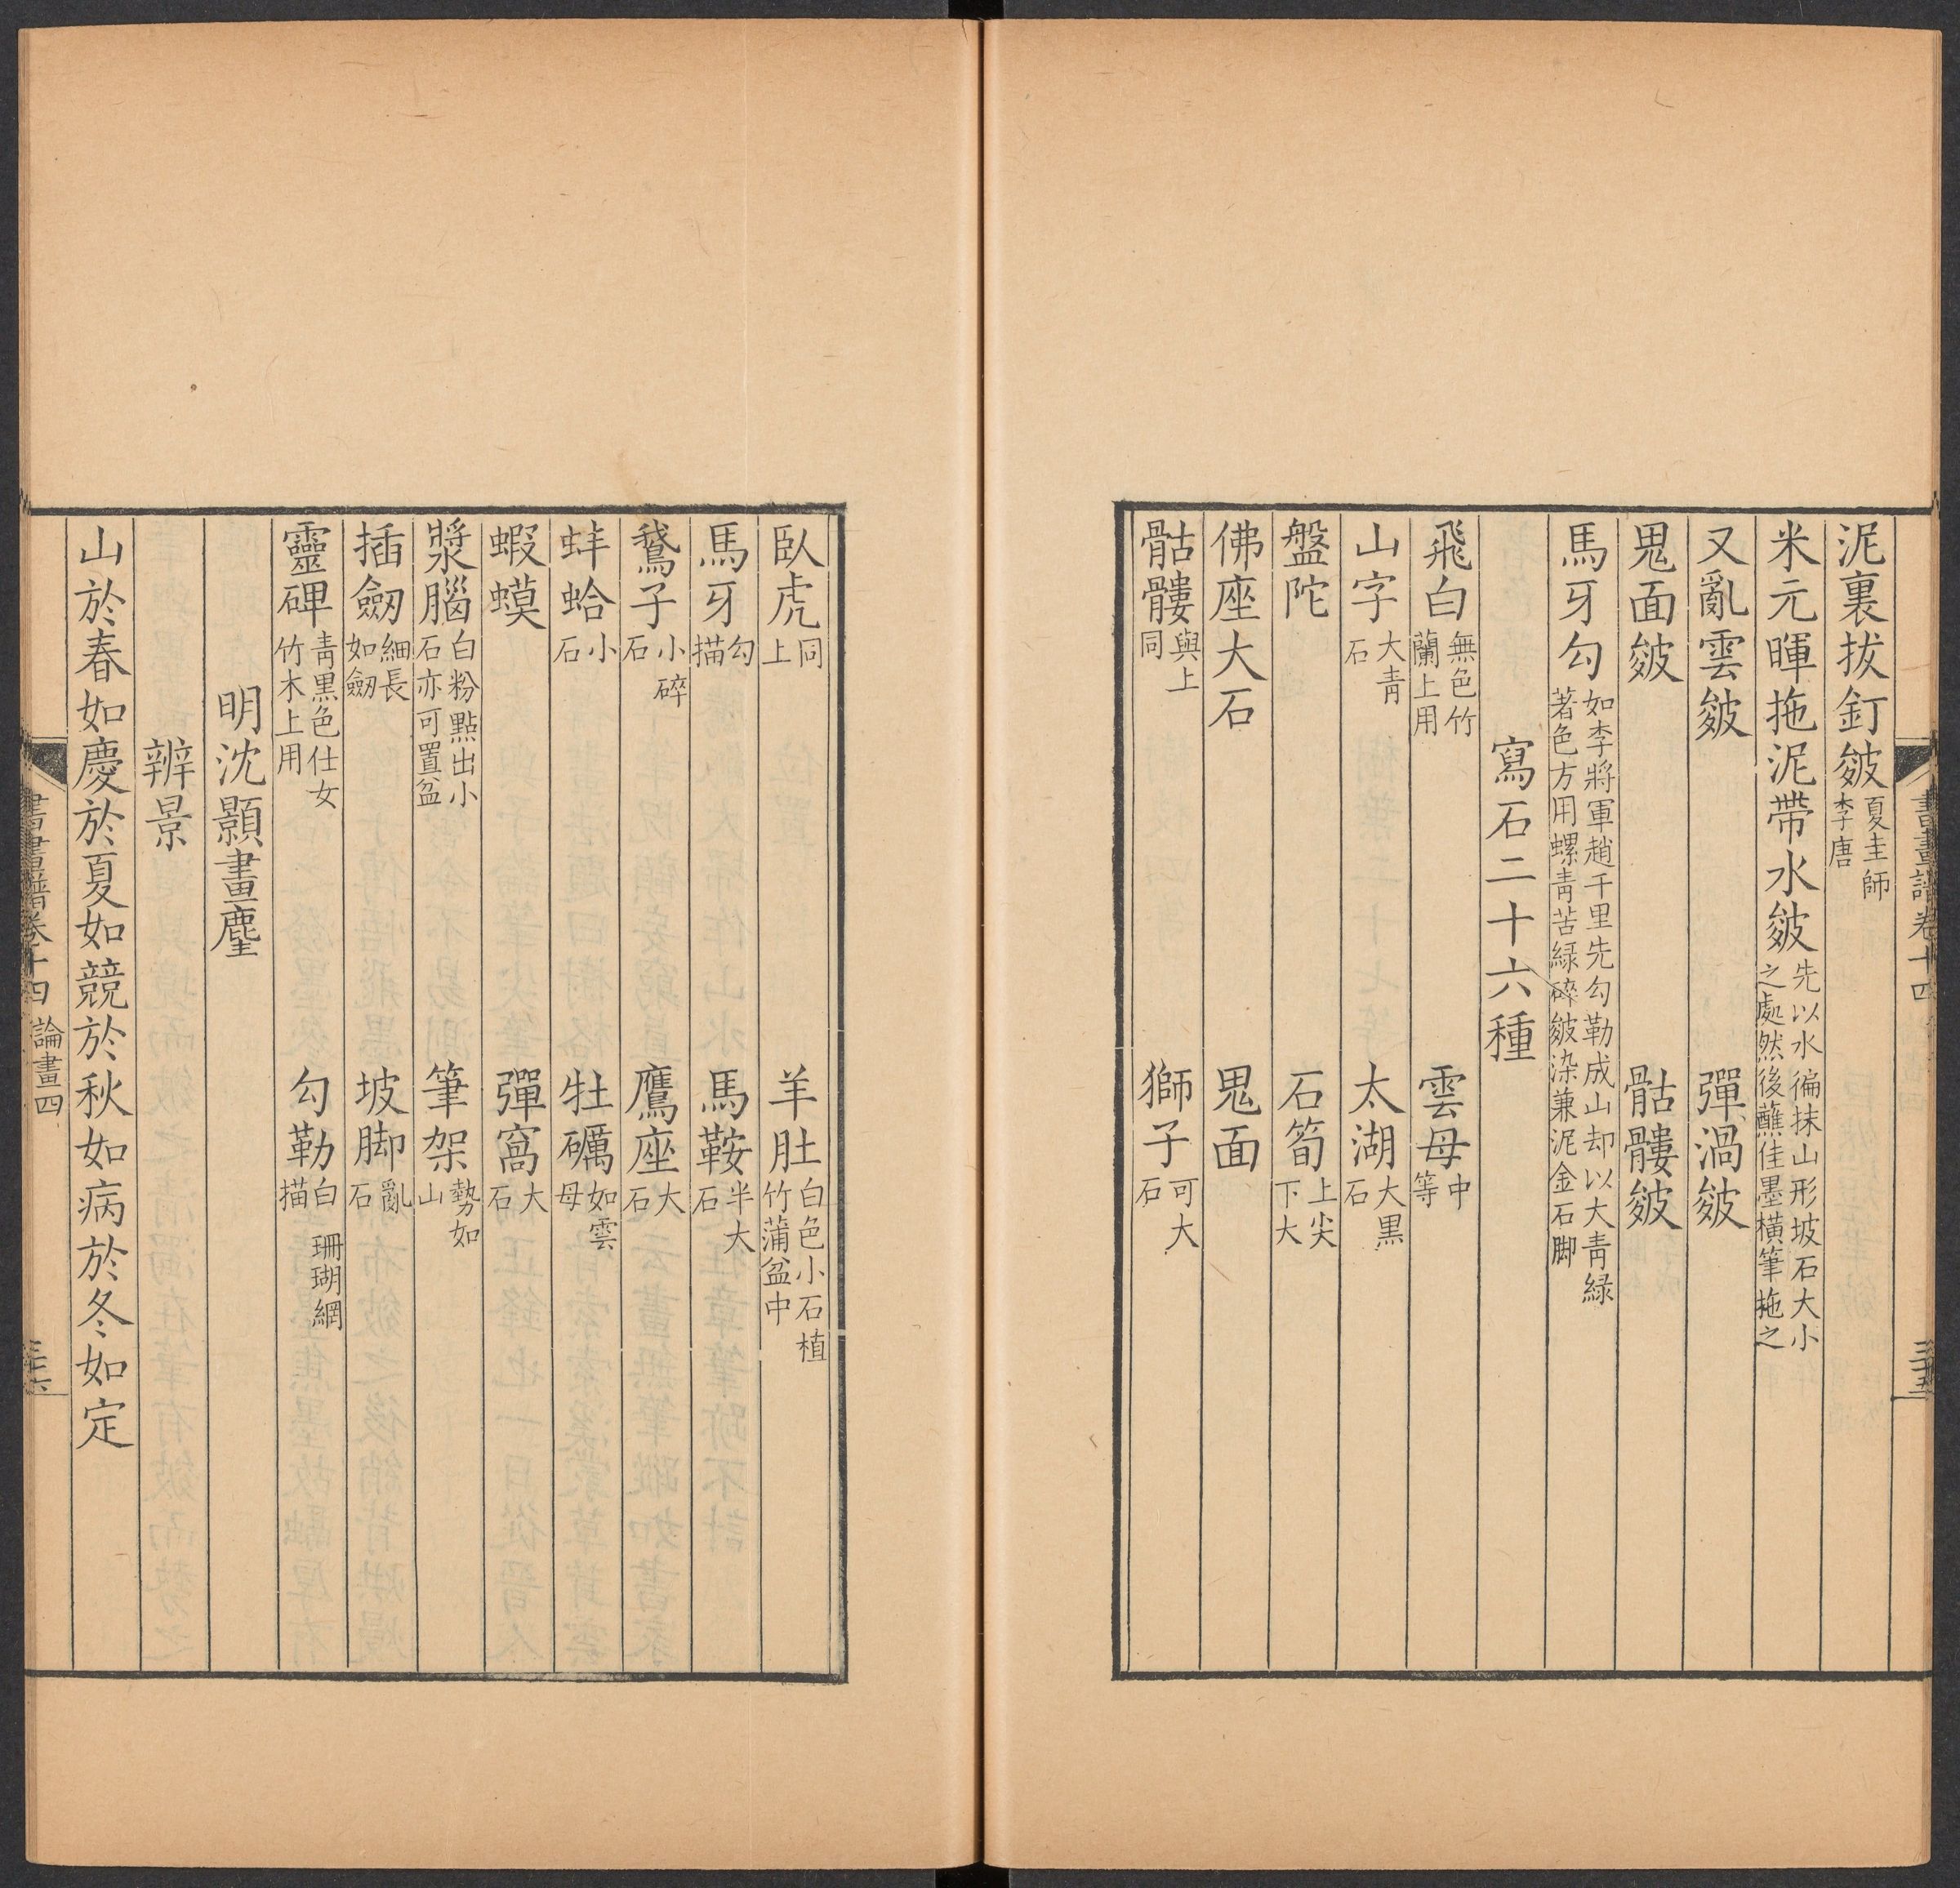 書畫譜卷十四
三十五
泥裏拔釘皴夏圭師李唐
米元暉拖泥帶水皴先以水徧抹山形坡石大小之處然後蘸佳墨橫筆拖之
又亂雲皴 彈渦皴
鬼面皴 骷髏皴
馬牙勾如李將軍趙千里先勾勒成山却以大青綠著色方用螺青苦綠碎皴染兼泥金石脚
寫石二十六種
飛白無色竹蘭上用 雲母中等
山字大青石 太湖大黑石
盤陀 石筍上尖下大
佛座大石 鬼面
骷髏與上同 獅子可大石
臥虎同上 羊肚白色小石植竹蒲盆中
馬牙勾描 馬鞍半大石
鵞子小碎石 鷹座大石
蚌蛤小石 牡礪如雲母
蝦蟆 彈窩大石
漿腦白粉點出小石亦可置盆 筆架勢如山
插劒細長如劒 坡脚亂石
靈碑青黑色仕女竹木上用 勾勒白描 珊瑚網
明沈顥畫麈
辨景
山於春如慶於夏如競於秋如病於冬如定
書畫譜卷十四 論畫四
三十六